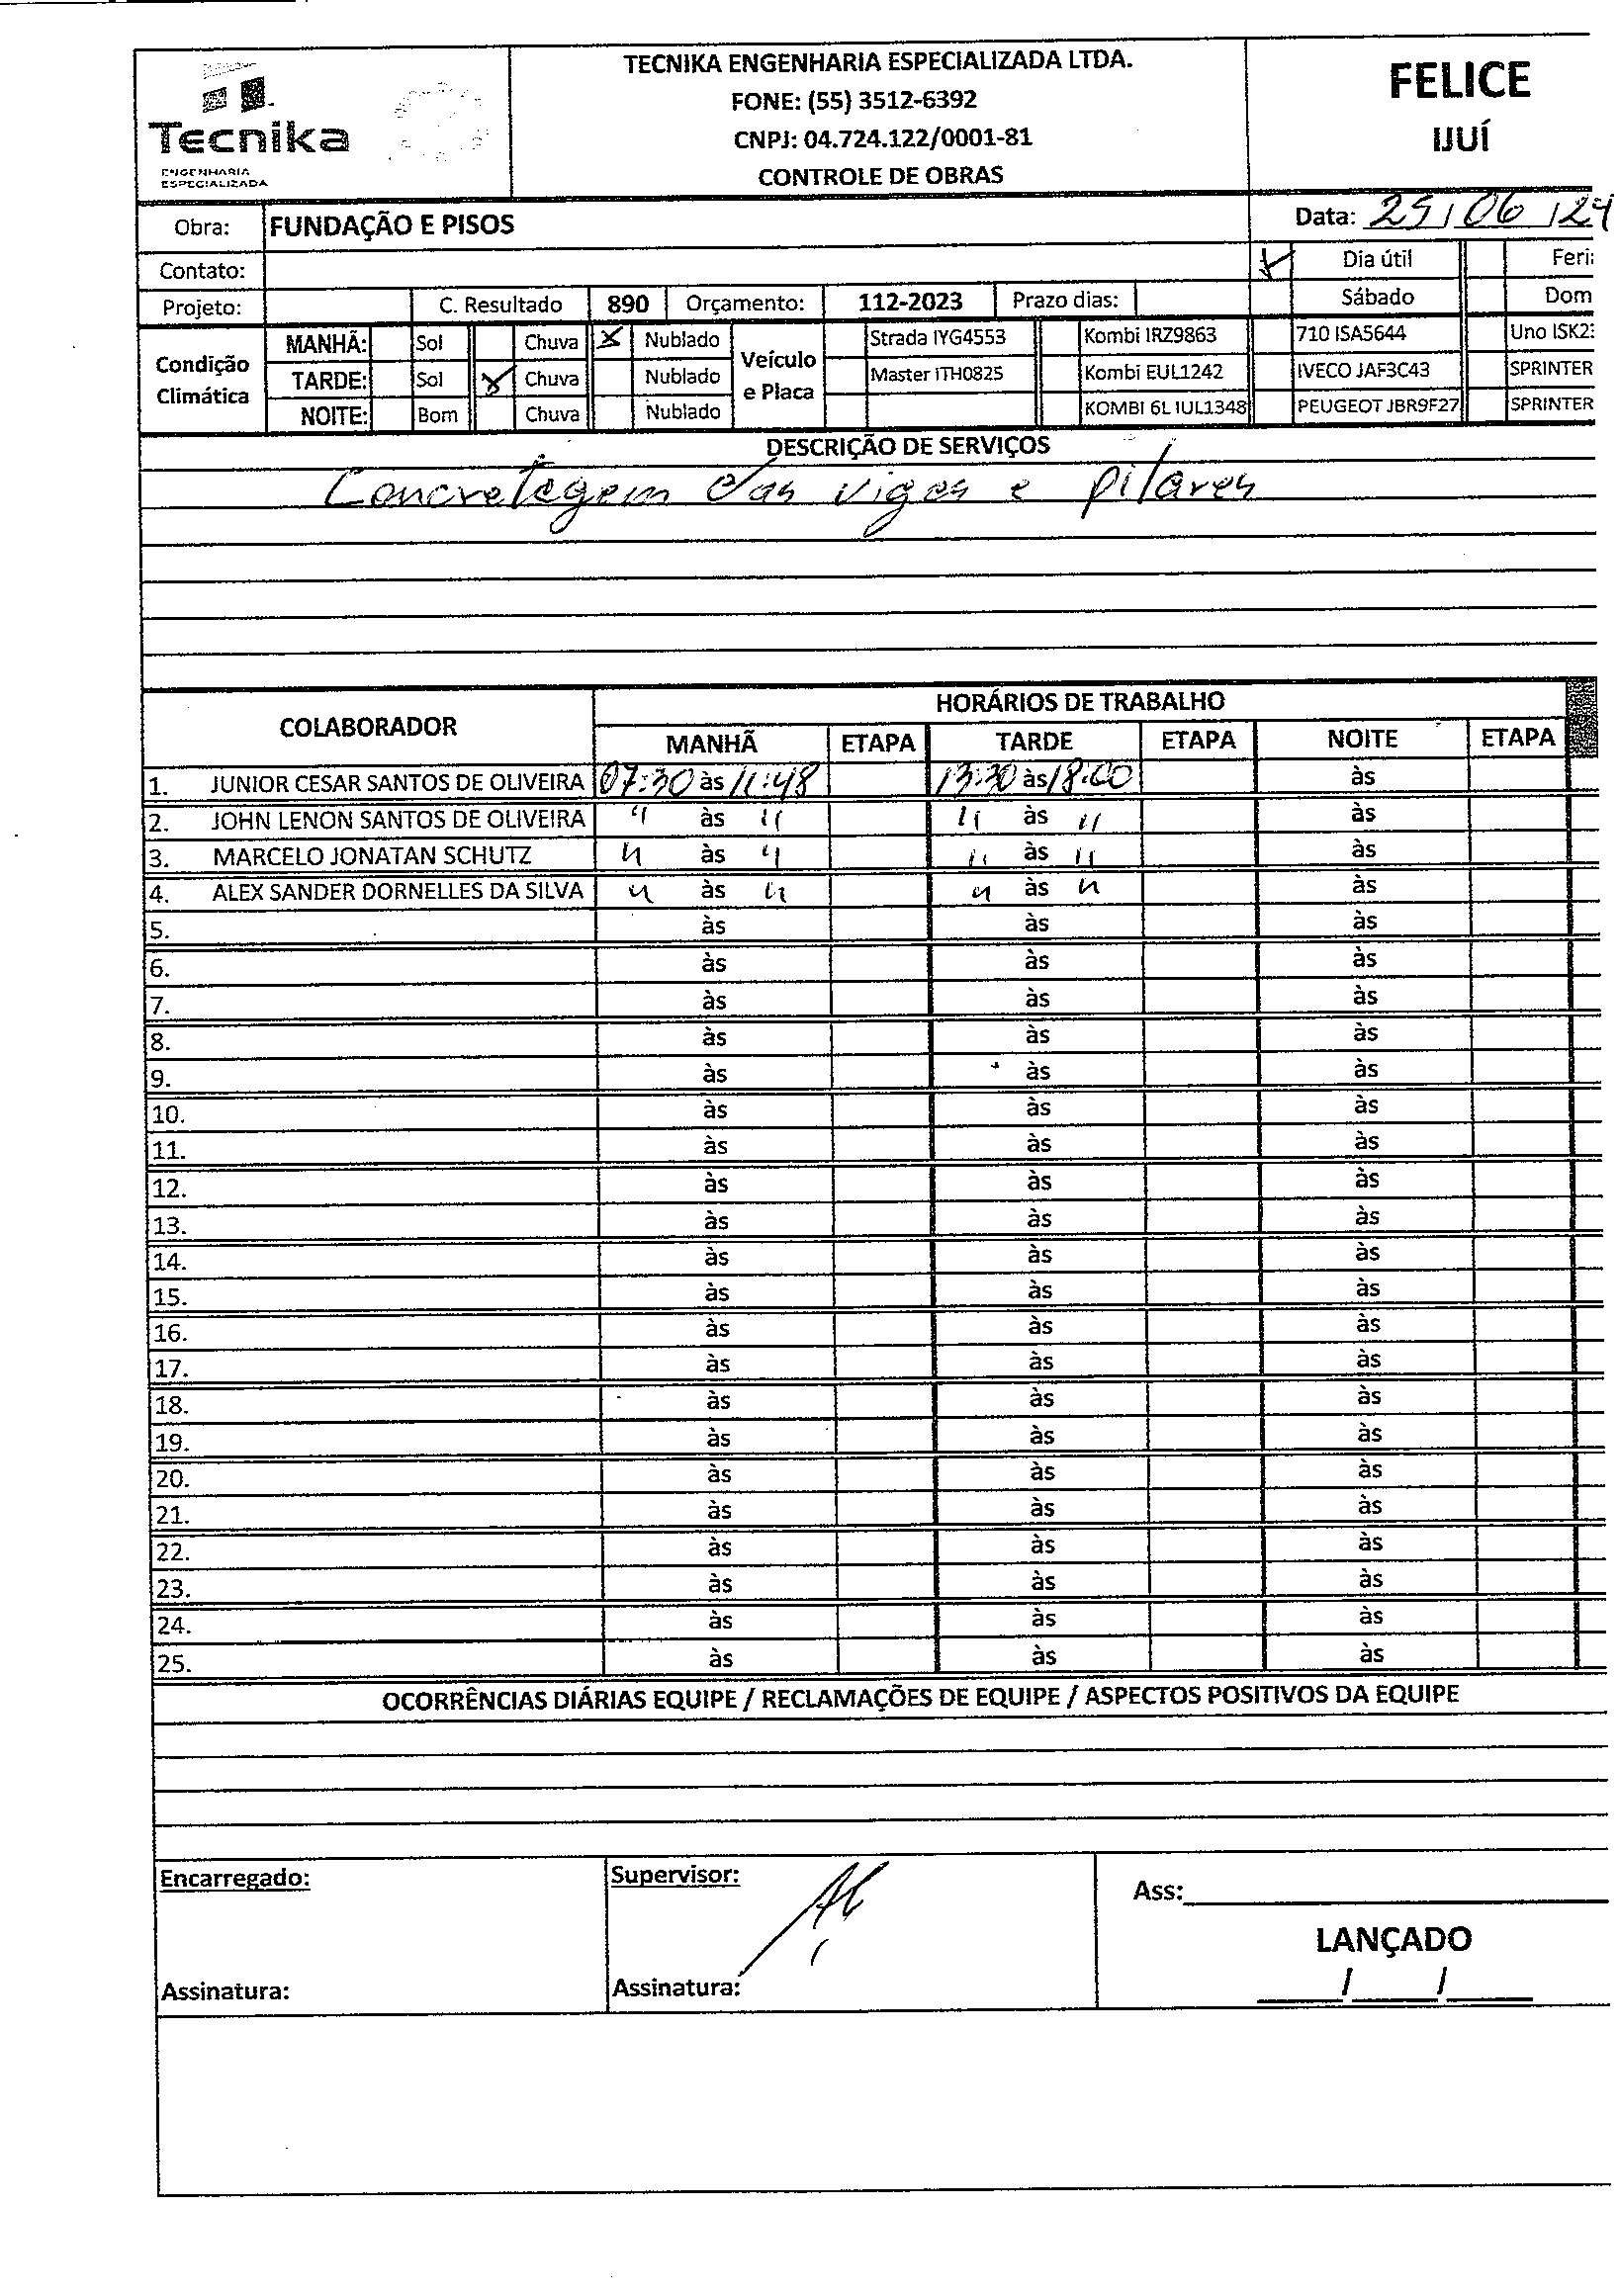 Tecnika
ENGENHARIA
ESPECIALIZADA
TECNIKA ENGENHARIA ESPECIALIZADA LTDA.
FONE: (55) 3512-6392
CNPJ: 04.724.122/0001-81
CONTROLE DE OBRAS
FELICE
IJUÍ
Obra: FUNDAÇÃO E PISOS Data: 25/06/24
Contato: Dia útil Feri
Projeto: C. Resultado 890 Orçamento: 112-2023 Prazo dias: Sábado Dom
Condição Climática
MANHÃ: Sol Chuva X Nublado Veículo e Placa Strada IYG4553 Kombi IRZ9863 710 ISA5644 Uno ISK2
TARDE: Sol X Chuva Nublado Master ITH0825 Kombi EUL1242 IVECO JAF3C43 SPRINTER
NOITE: Bom Chuva Nublado KOMBI 6L IUL1348 PEUGEOT JBR9F27 SPRINTER
DESCRIÇÃO DE SERVIÇOS
Concretagem das vigas e pilares
COLABORADOR HORÁRIOS DE TRABALHO
MANHÃ ETAPA TARDE ETAPA NOITE ETAPA
1. JUNIOR CESAR SANTOS DE OLIVEIRA 07:30 às 11:48 13:30 às 18:00 às
2. JOHN LENON SANTOS DE OLIVEIRA " às " " às " às
3. MARCELO JONATAN SCHUTZ " às " " às " às
4. ALEX SANDER DORNELLES DA SILVA " às " " às " às
5. às às às
6. às às às
7. às às às
8. às às às
9. às às às
10. às às às
11. às às às
12. às às às
13. às às às
14. às às às
15. às às às
16. às às às
17. às às às
18. às às às
19. às às às
20. às às às
21. às às às
22. às às às
23. às às às
24. às às às
25. às às às
OCORRÊNCIAS DIÁRIAS EQUIPE / RECLAMAÇÕES DE EQUIPE / ASPECTOS POSITIVOS DA EQUIPE
Encarregado: Supervisor: Ass:
LANÇADO
Assinatura: Assinatura: / /